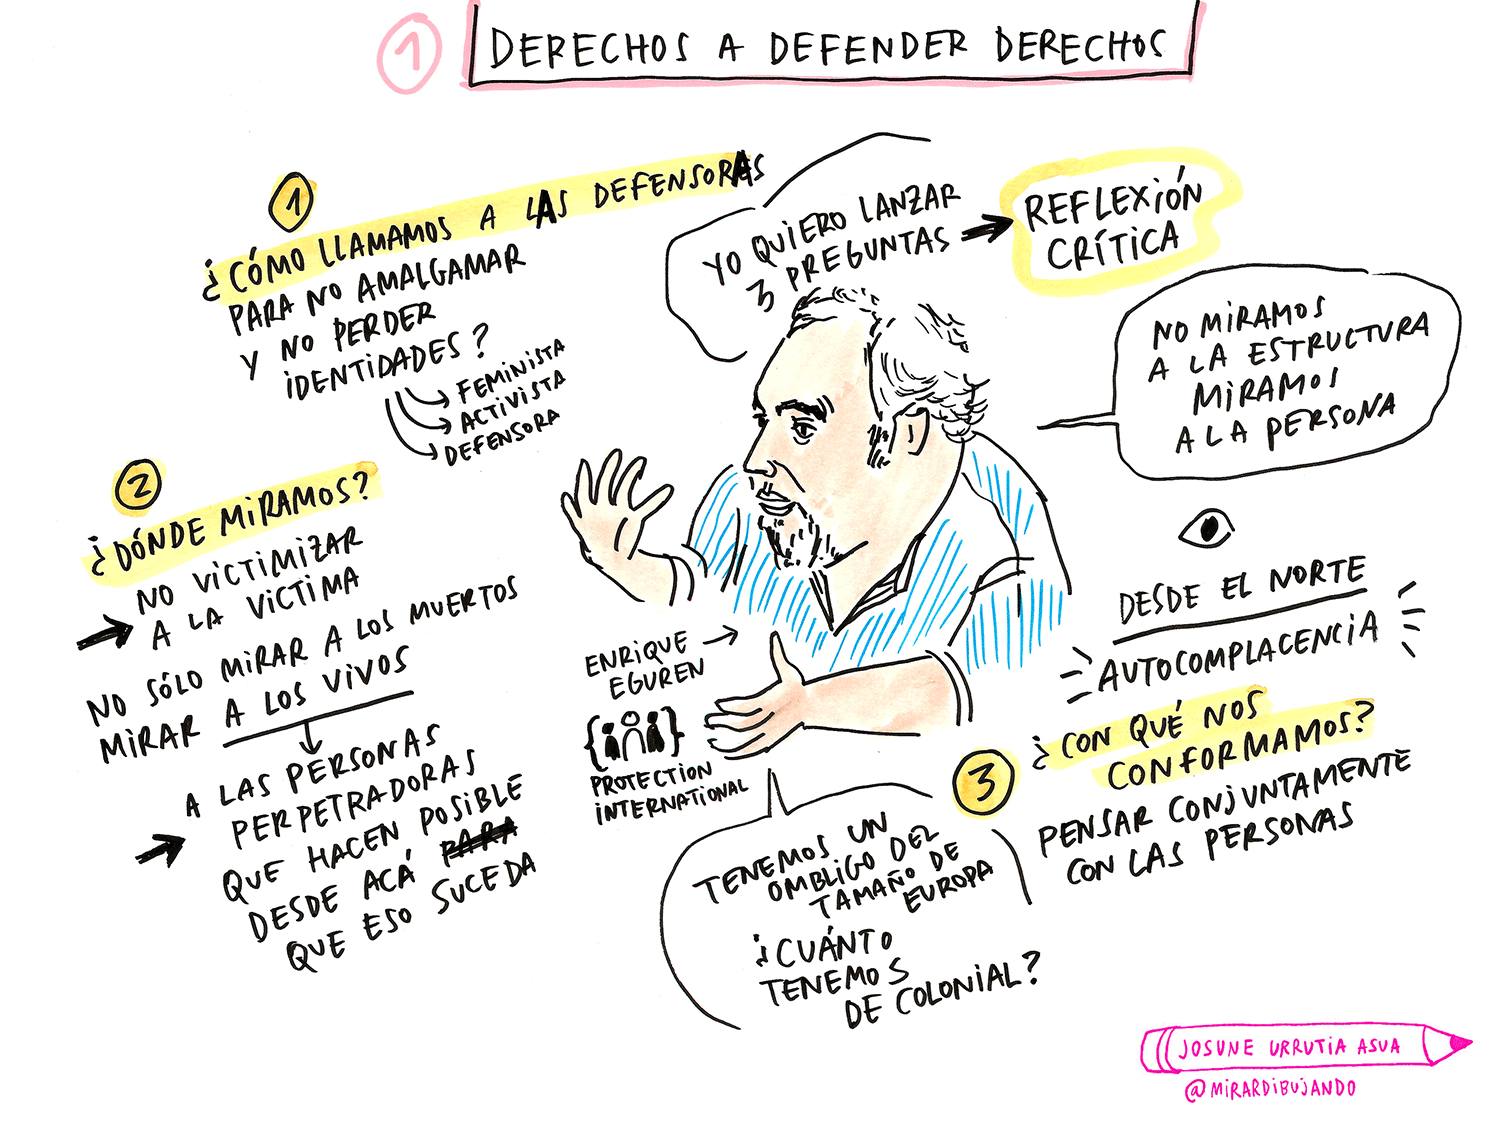 1 DERECHOS A DEFENDER DERECHOS
1
¿CÓMO LLAMAMOS A LAS DEFENSORAS
PARA NO AMALGAMAR
Y NO PERDER
IDENTIDADES?
FEMINISTA
ACTIVISTA
DEFENSORA
YO QUIERO LANZAR
3 PREGUNTAS
REFLEXIÓN
CRÍTICA
NO MIRAMOS
A LA ESTRUCTURA
MIRAMOS
A LA PERSONA
2
¿DÓNDE MIRAMOS?
NO VICTIMIZAR
A LA VICTIMA
NO SÓLO MIRAR A LOS MUERTOS
MIRAR A LOS VIVOS
A LAS PERSONAS
PERPETRADORAS
QUE HACEN POSIBLE
DESDE ACÁ PARA
QUE ESO SUCEDA
ENRIQUE
EGUREN
PROTECTION
INTERNATIONAL
DESDE EL NORTE
AUTOCOMPLACENCIA
3
¿CON QUÉ NOS
CONFORMAMOS?
PENSAR CONJUNTAMENTE
CON LAS PERSONAS
TENEMOS UN
OMBLIGO DEL
TAMAÑO DE
EUROPA
¿CUÁNTO
TENEMOS
DE COLONIAL?
JOSUNE URRUTIA ASUA
@MIRARDIBUJANDO